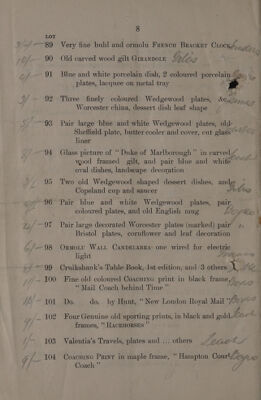 8
LOT
89 Very fine buhl and ormolu FRENCH BRACKET CLOCK
90 Old carved wood gilt GIRANDOLE
91 Blue and white porcelain dish, 2 coloured porcelain
plates, lacquer on metal tray
92 Three finely coloured Wedgewood plates,
Worcester china, dessert dish leaf shape
93 Pair large blue and white Wedgewood plates, old
Sheffield plate, butter cooler and cover, cut glass
liner
94 Glass picture of "Duke of Marlborough" in carved
wood framed gilt, and pair blue and white
oval dishes, landscape decoration
95 Two old Wedgewood shaped dessert dishes, and
Copeland cup and saucer
96 Pair blue and white Wedgewood plates, pair
coloured plates, and old English mug
97 Pair large decorated Worcester plates (marked) pair
Bristol plates, cornflower and leaf decoration
98 ORMOLU WALL CANDELABRA one wired for electric
light
99 Cruikshank's Table Book, 1st edition, and 3 others
100 Fine old coloured COACHING print in black frame
"Mail Coach behind Time"
101 Do. do. by Hunt, "New London Royal Mail"
102 Four Genuine old sporting prints, in black and gold
frames, "RACEHORSES"
103 Valentia's Travels, plates and ... others
104 COACHING PRINT in maple frame, "Hampton Court
Coach"